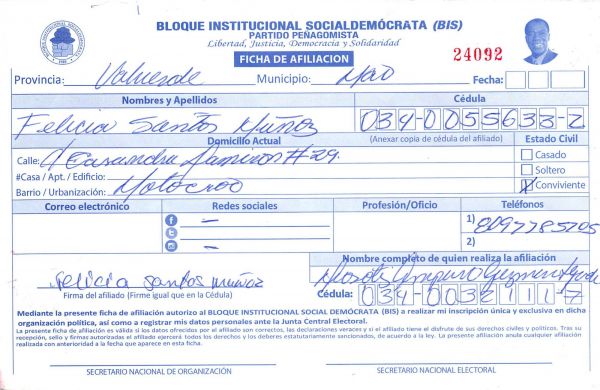 BLOQUE INSTITUCIONAL SOCIALDEMÓCRATA (BIS)
PARTIDO PEÑAGOMISTA
Libertad, Justicia, Democracia y Solidaridad
FICHA DE AFILIACION
24092
Provincia: Valverde Municipio: Mao Fecha:
Nombres y Apellidos Cédula
Felicia Santos Muñoz 034-0055633-2
Domicilio Actual (Anexar copia de cédula del afiliado) Estado Civil
Calle: #29
#Casa / Apt. / Edificio:
Barrio / Urbanización: Motocroo
Casado
Soltero
X Conviviente
Correo electrónico Redes sociales Profesión/Oficio Teléfonos
– 1) 8097785705
– 2)
Nombre completo de quien realiza la afiliación
felicia santos muñoz
Firma del afiliado (Firme igual que en la Cédula) Cédula: 034-0032111-7
Mediante la presente ficha de afiliación autorizo al BLOQUE INSTITUCIONAL SOCIAL DEMÓCRATA (BIS) a realizar mi inscripción única y exclusiva en dicha
organización política, así como a registrar mis datos personales ante la Junta Central Electoral.
La presente ficha de afiliación es válida si los datos ofrecidos por el afiliado son correctos, las declaraciones veraces y si el afiliado tiene el disfrute de sus derechos civiles y políticos. Tras su
recepción, sello y firmas autorizadas el afiliado ejercerá todos los derechos y los deberes estatutariamente sancionados, de acuerdo a la ley. La presente afiliación anula cualquier afiliación
realizada con anterioridad a la fecha que aparece en esta ficha.
SECRETARIO NACIONAL DE ORGANIZACIÓN SECRETARIO NACIONAL ELECTORAL